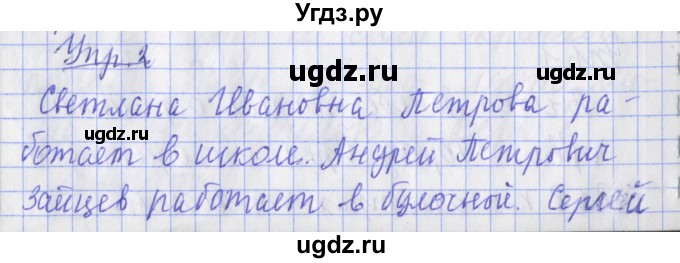 Угдз.ру
Упр. 2
ugdz.ru ugdz.ru
Светлана Ивановна Петрова ра-
ugdz.ru
ботает в школе. Андрей Петрович
ugdz.ru
Зайцев работает в булочной. Сергей
ugdz.ru